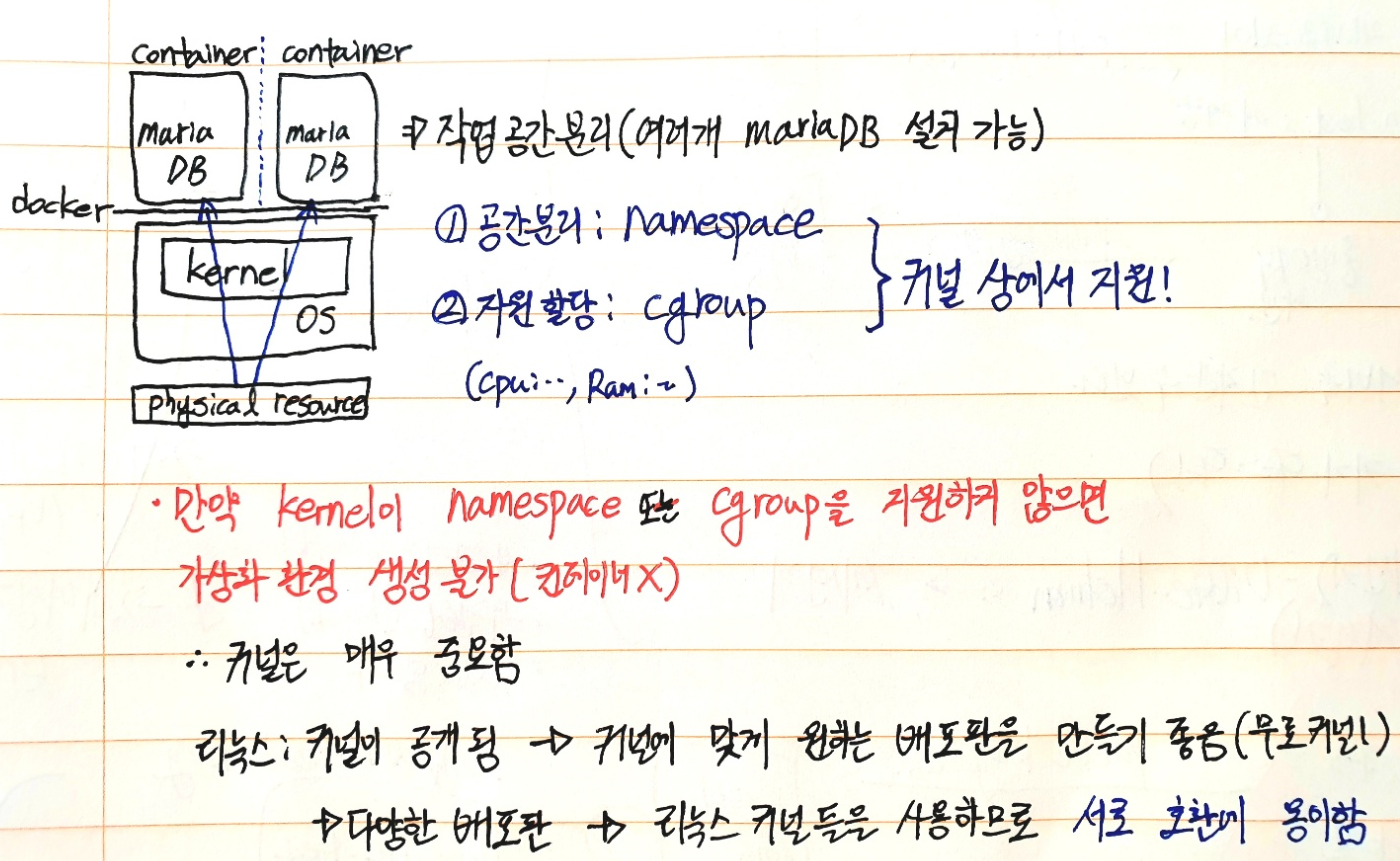 container container
maria DB
maria DB
docker
kernel
OS
physical resource
⇒ 작업공간분리(여러개 mariaDB 설치 가능)
① 공간분리: namespace
② 자원할당: cgroup
(cpu:.., Ram:~)
커널 상에서 지원!
· 만약 kernel이 namespace 또는 cgroup을 지원하지 않으면
가상화 환경 생성 불가 (컨테이너X)
∴ 커널은 매우 중요함
리눅스: 커널이 공개됨 → 커널에 맞게 원하는 배포판을 만들기 좋음(무료커널!)
→ 다양한 배포판 → 리눅스 커널들을 사용하므로 서로 호환에 용이함